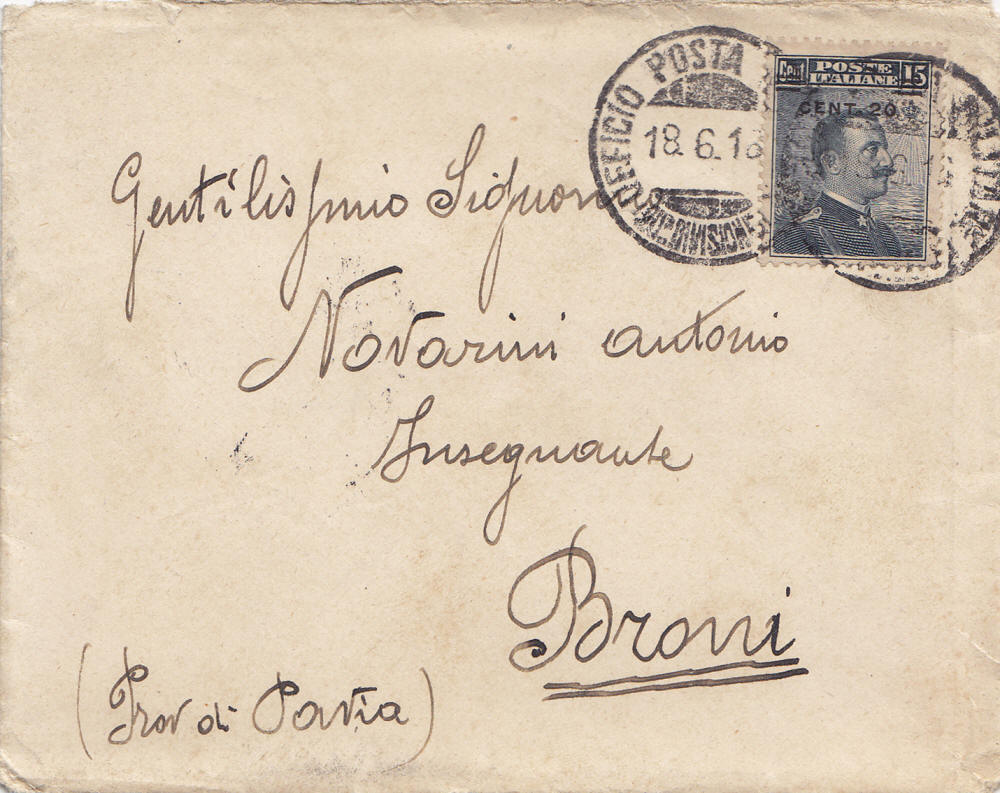 UFFICIO POSTA
18.6.18
DIVISIONE
Cent POSTE ITALIANE 15
CENT. 20
Gentilissimo Signor
Novarini Antonio
Insegnante
Broni
(Prov di Pavia)